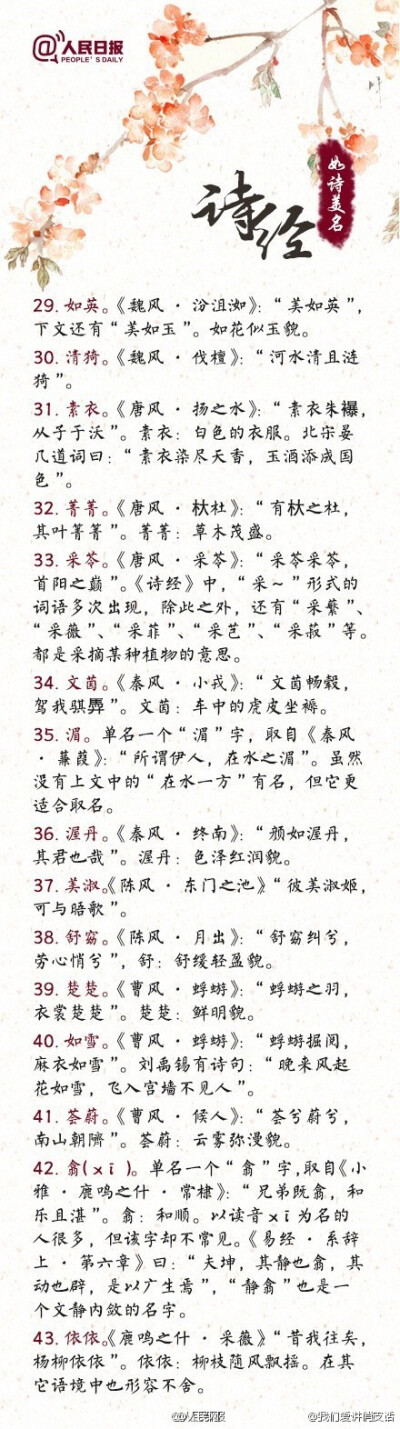 @人民日报
PEOPLE'S DAILY
诗经
如诗美名
29. 如英。《魏风 · 汾沮洳》：“美如英”，
下文还有“美如玉”。如花似玉貌。
30. 清猗。《魏风 · 伐檀》：“河水清且涟
猗”。
31. 素衣。《唐风 · 扬之水》：“素衣朱襮，
从子于沃”。素衣：白色的衣服。北宋晏
几道词曰：“素衣染尽天香，玉酒添成国
色”。
32. 菁菁。《唐风 · 杕杜》：“有杕之杜，
其叶菁菁”。菁菁：草木茂盛。
33. 采苓。《唐风 · 采苓》：“采苓采苓，
首阳之巅”。《诗经》中，“采～”形式的
词语多次出现，除此之外，还有“采蘩”、
“采薇”、“采菲”、“采芑”、“采菽”等。
都是采摘某种植物的意思。
34. 文茵。《秦风 · 小戎》：“文茵畅毂，
驾我骐馵”。文茵：车中的虎皮坐褥。
35. 湄。单名一个“湄”字，取自《秦风
· 蒹葭》：“所谓伊人，在水之湄”。虽然
没有上文中的“在水一方”有名，但它更
适合取名。
36. 渥丹。《秦风 · 终南》：“颜如渥丹，
其君也哉”。渥丹：色泽红润貌。
37. 美淑。《陈风 · 东门之池》“彼美淑姬，
可与晤歌”。
38. 舒窈。《陈风 · 月出》：“舒窈纠兮，
劳心悄兮”，舒：舒缓轻盈貌。
39. 楚楚。《曹风 · 蜉蝣》：“蜉蝣之羽，
衣裳楚楚”。楚楚：鲜明貌。
40. 如雪。《曹风 · 蜉蝣》：“蜉蝣掘阅，
麻衣如雪”。刘禹锡有诗句：“晚来风起
花如雪，飞入宫墙不见人”。
41. 荟蔚。《曹风 · 候人》：“荟兮蔚兮，
南山朝隮”。荟蔚：云雾弥漫貌。
42. 翕(xī)。单名一个“翕”字，取自《小
雅 · 鹿鸣之什 · 常棣》：“兄弟既翕，和
乐且湛”。翕：和顺。以读音xī为名的
人很多，但该字却不常见。《易经 · 系辞
上 · 第六章》曰：“夫坤，其静也翕，其
动也辟，是以广生焉”，“静翕”也是一
个文静内敛的名字。
43. 依依。《鹿鸣之什 · 采薇》“昔我往矣，
杨柳依依”。依依：柳枝随风飘摇。在其
它语境中也形容不舍。
@人民网
@我们爱讲冷笑话